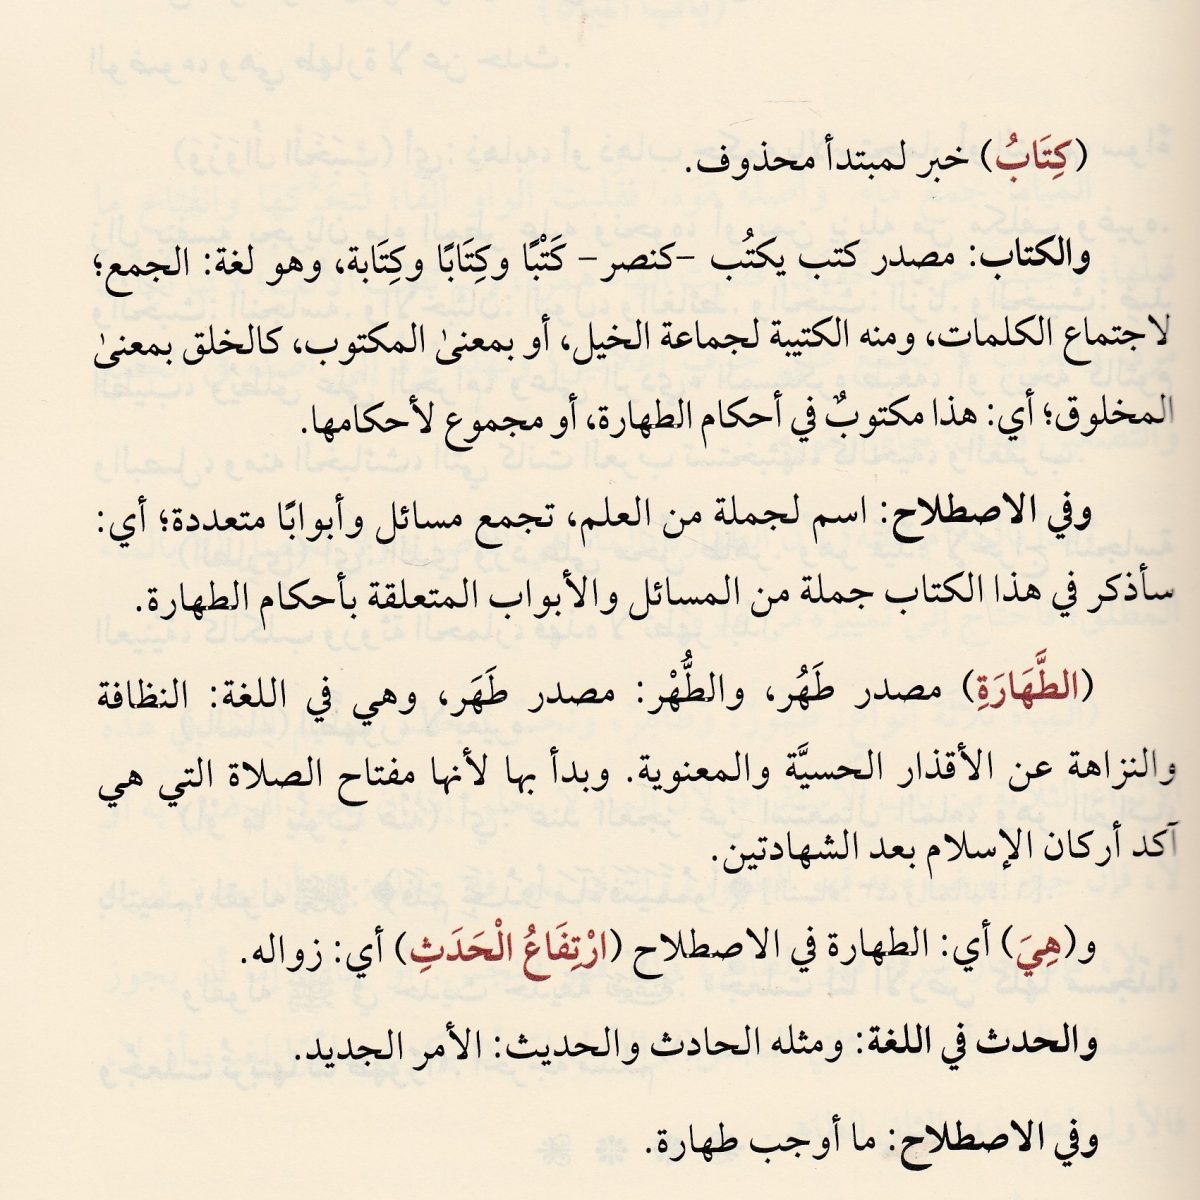 (كِتَابُ) خبر لمبتدأ محذوف.
والكتاب: مصدر كتب يكتُب -كنصر- كَتْبًا وكِتَابًا وكِتَابة، وهو لغة: الجمع؛
لاجتماع الكلمات، ومنه الكتيبة لجماعة الخيل، أو بمعنىٰ المكتوب، كالخلق بمعنىٰ
المخلوق؛ أي: هذا مكتوبٌ في أحكام الطهارة، أو مجموع لأحكامها.
وفي الاصطلاح: اسم لجملة من العلم، تجمع مسائل وأبوابًا متعددة؛ أي:
سأذكر في هذا الكتاب جملة من المسائل والأبواب المتعلقة بأحكام الطهارة.
(الطَّهَارَةِ) مصدر طَهُر، والطُّهْر: مصدر طَهَر، وهي في اللغة: النظافة
والنزاهة عن الأقذار الحسيَّة والمعنوية. وبدأ بها لأنها مفتاح الصلاة التي هي
آكد أركان الإسلام بعد الشهادتين.
و(هِيَ) أي: الطهارة في الاصطلاح (ارْتِفَاعُ الْحَدَثِ) أي: زواله.
والحدث في اللغة: ومثله الحادث والحديث: الأمر الجديد.
وفي الاصطلاح: ما أوجب طهارة.